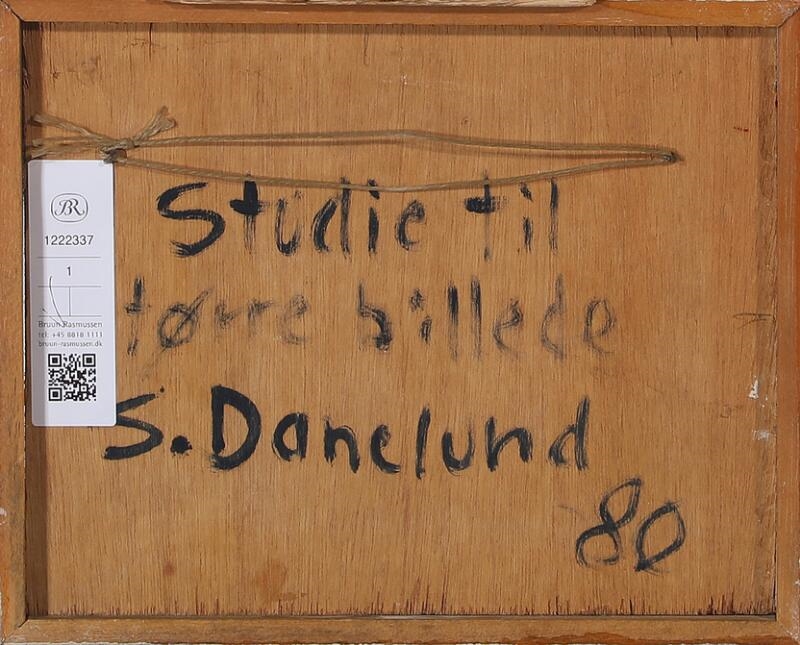 BR
1222337
1
Bruun Rasmussen
tel. +45 8818 1111
bruun-rasmussen.dk
Studie til
tørre billede
S. Danelund
80